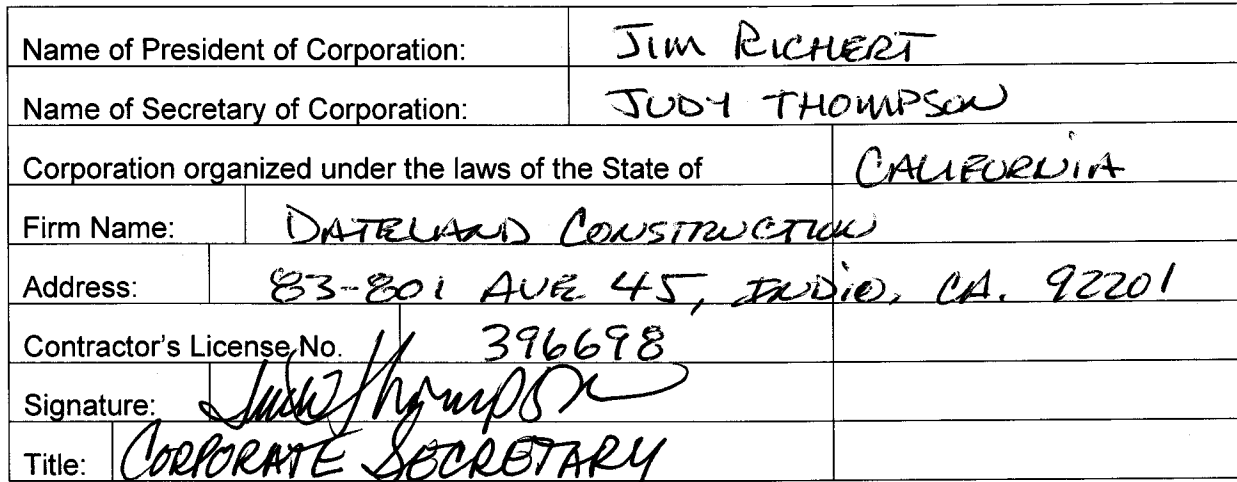 Name of President of Corporation: JIM RICHERT
Name of Secretary of Corporation: JUDY THOMPSON
Corporation organized under the laws of the State of CALIFORNIA
Firm Name: DATELAND CONSTRUCTION
Address: 83-801 AVE 45, INDIO, CA. 92201
Contractor's License No. 396698
Signature: Judy Thompson
Title: CORPORATE SECRETARY